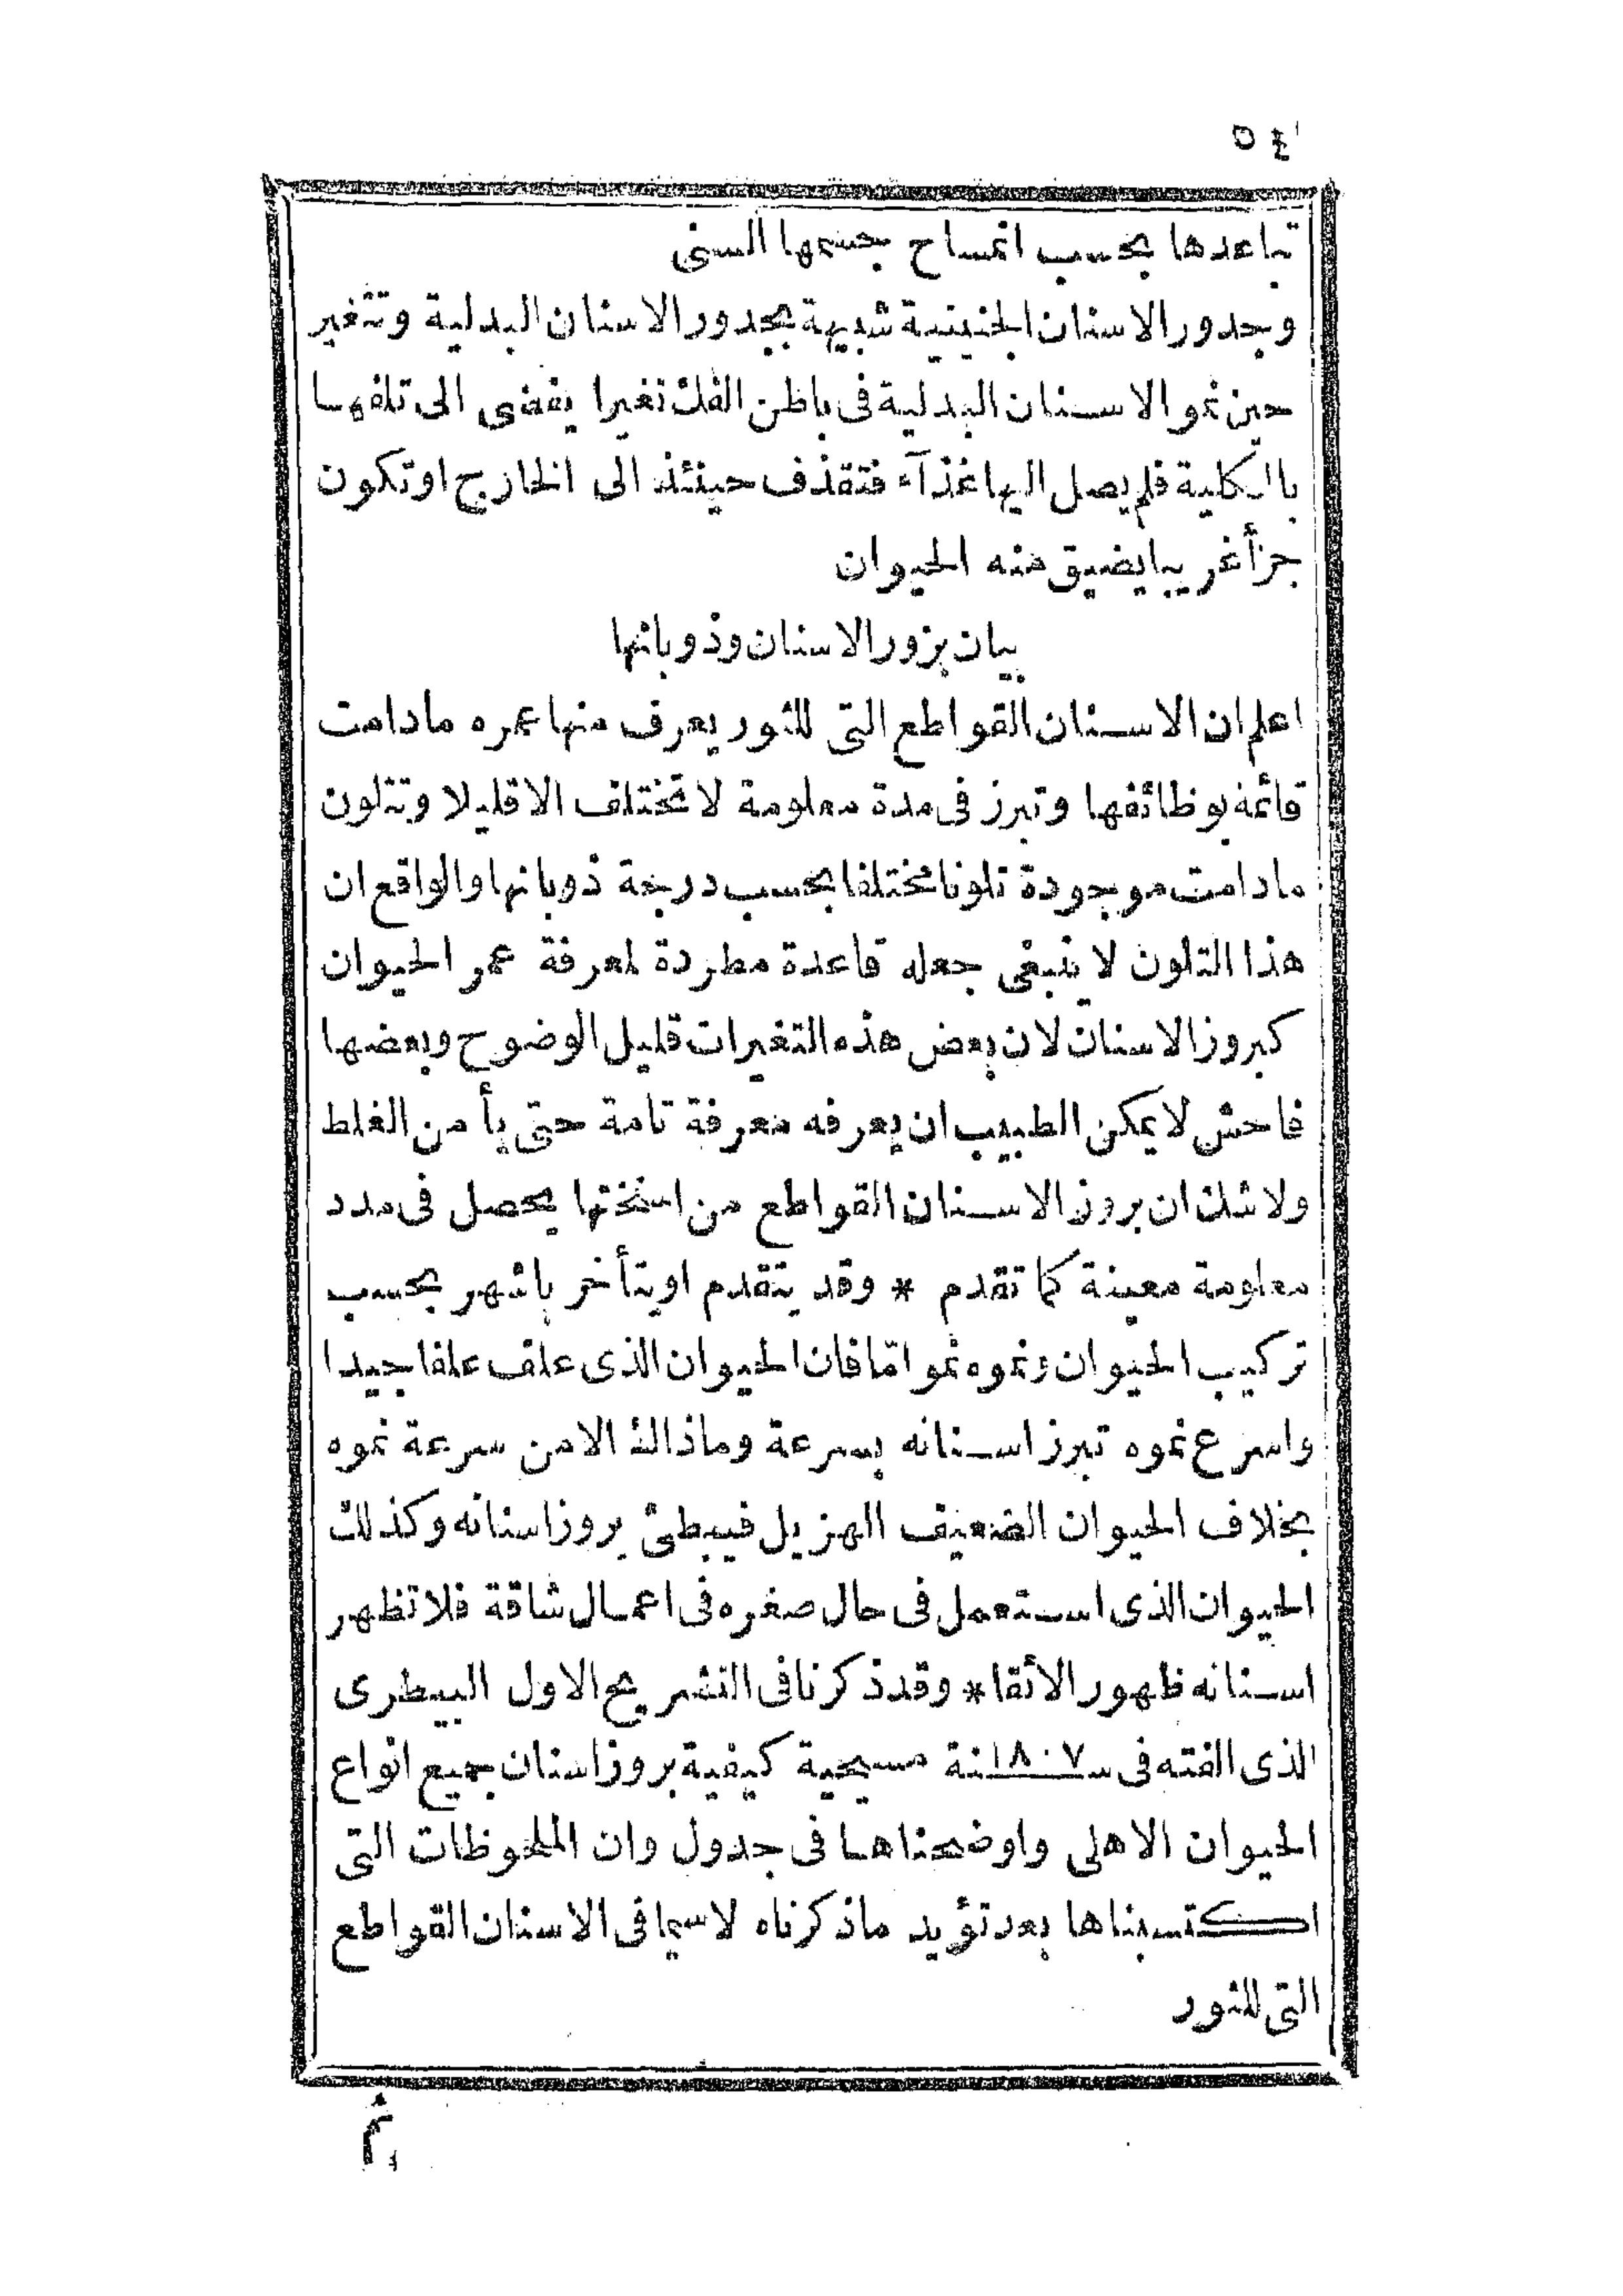 ٥٤
تباعدها بحسب انمساح جسمها السنى
وجدور الاسنان الجنينية شبيهة بجدور الاسنان البدلية وتتغير
حين نمو الاسنان البدلية فى باطن الفك تغيرا يفضى الى تلفها
بالكلية فلم يصل اليها غذآء فتقذف حينئذ الى الخارج او تكون
جزأ غريبا يضيق منه الحيوان
بيان بزور الاسنان وذوبانها
اعلم ان الاسنان القواطع التى للثور يعرف منها عمره مادامت
قائمة بوظائفها وتبرز فى مدة معلومة لا تختلف الا قليلا وتتلون
مادامت موجودة تلونا مختلفا بحسب درجة ذوبانها والواقع ان
هذا التلون لا ينبغى جعله قاعدة مطردة لمعرفة عمر الحيوان
كبروز الاسنان لان بعض هذه التغيرات قليل الوضوح وبعضها
فاحش لا يمكن الطبيب ان يعرفه معرفة تامة حتى يأ من الغلط
ولا شك ان بروز الاسنان القواطع من اسنختها يحصل فى مدد
معلومة معينة كما تقدم * وقد يتقدم او يتأخر باشهر بحسب
تركيب الحيوان ونموه نموا تما فان الحيوان الذى علف علفا جيدا
واسرع نموه تبرز اسنانه بسرعة وماذاك الا من سرعة نموه
بخلاف الحيوان الضعيف الهزيل فيبطئ بروز اسنانه وكذلك
الحيوان الذى استعمل فى حال صغره فى اعمال شاقة فلا تظهر
اسنانه ظهورا لأئقا * وقد ذكرنا فى التشريح الاول البيطرى
الذى الفته فى سنة ١٨٠٧ مسيحية كيفية بروز اسنان جميع انواع
الحيوان الاهلى واوضحناها فى جدول وان الملحوظات التى
اكتسبناها بعد تؤيد ماذكرناه لا سيما فى الاسنان القواطع
التى للثور
ثم